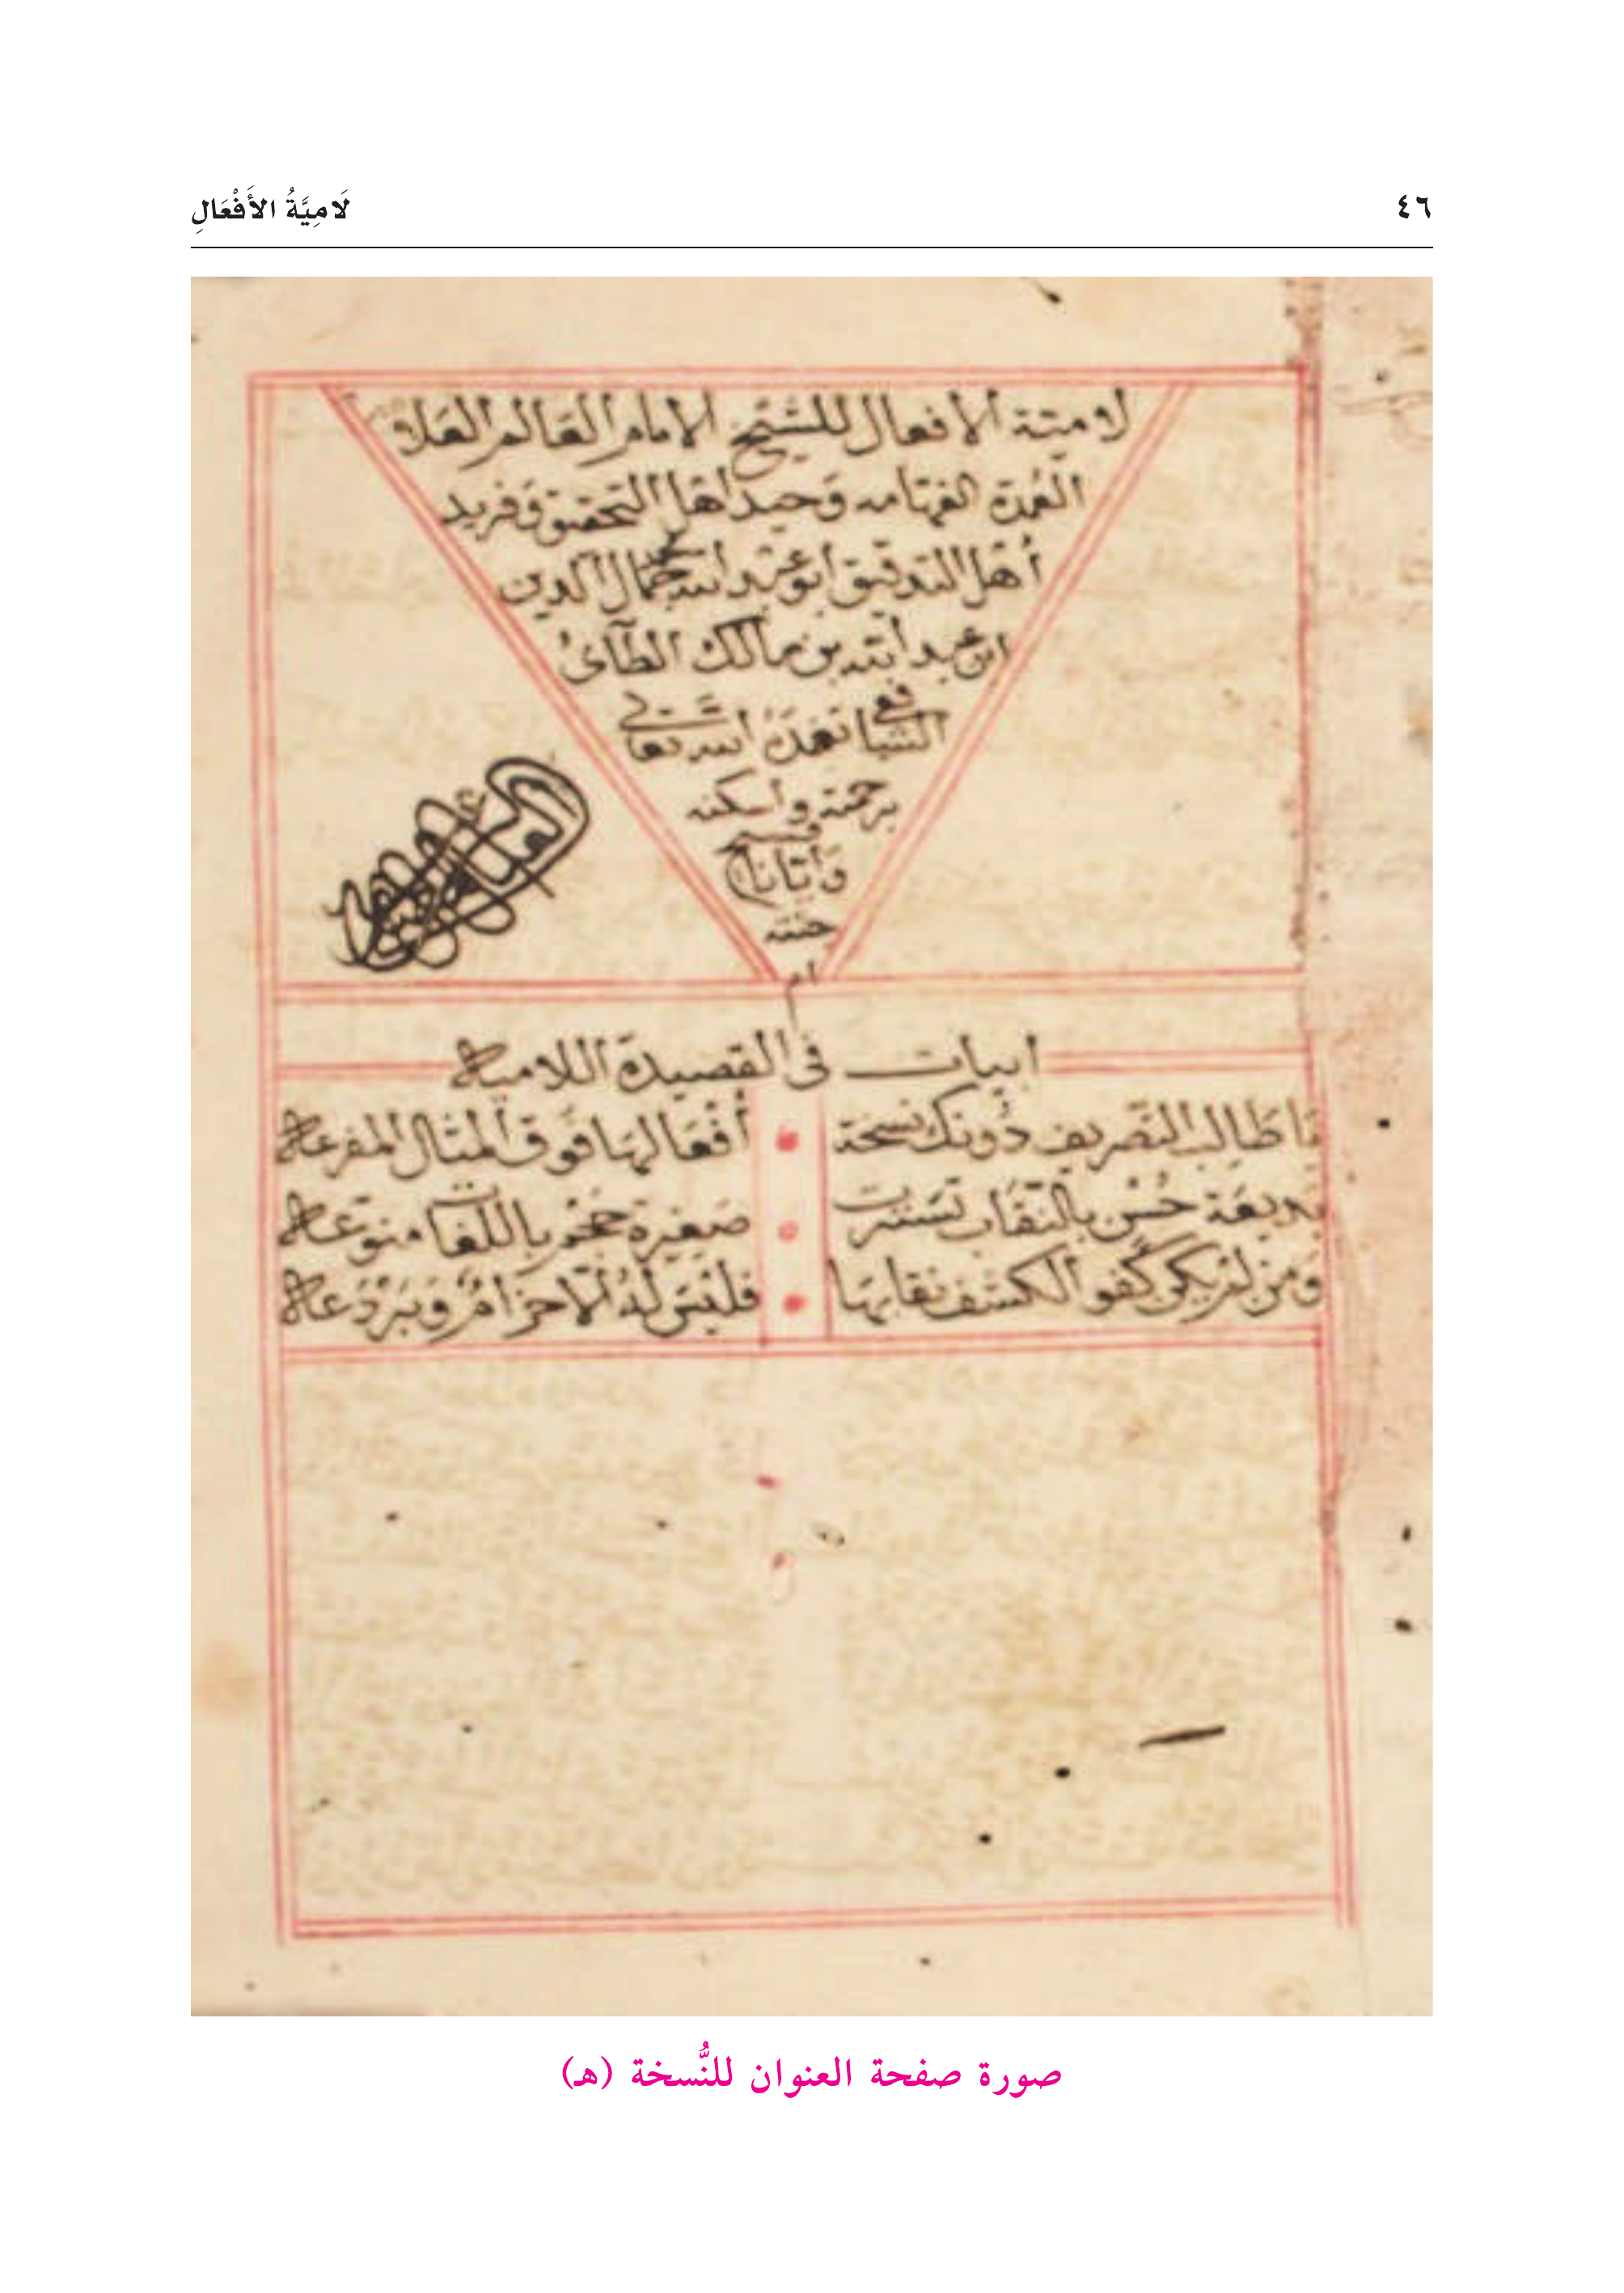 ٤٦
لَامِيَّةُ الأَفْعَالِ
لامية الأفعال للشيخ الإمام العالم العلا
العُمدة الفهامه وَحيد اهل التحقيق وَفريد
أهل التدقيق ابو عبد الله محمد جمال الدين
ابن عبد الله بن مالك الطآئىُ
الشافعى تغمدَهُ الله تعالى
برحمته وأسكنه
فسيح
وَأيّانا
جنته
ام
ابيات فى القصيدة اللاميه
يَا طَالِب التصَريف دُونك نسخة
أفْعَالهَا فوق المثال المفرعه
بديعَة حُسْن بالنقَاب تسَترت
صَغيرة حجَم باللغات منوّعَه
وَمن لم يكن كفوا لكشف نقابهَا
فليسَ لهُ الا حزامٌ وَبَرْدَعه
صورة صفحة العنوان للنُّسخة (هـ)